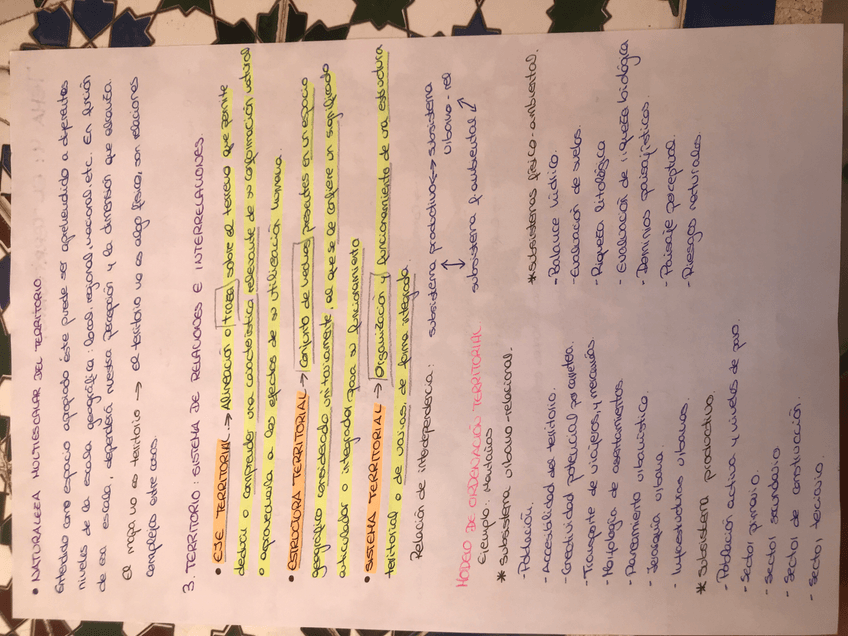 • NATURALEZA MULTIESCALAR DEL TERRITORIO
Entendido como espacio apropiado éste puede ser aprehendido a diferentes
niveles de la escala geográfica: local, regional, nacional, etc. En función
de esa escala, dependerá nuestra percepción y la dimensión que
El mapa no es territorio → el territorio no es algo físico, son relaciones
complejas entre cosas.
3. TERRITORIO: SISTEMA DE RELACIONES E INTERRELACIONES.
• EJE TERRITORIAL → Alineación o traza sobre el terreno que permite
deducir o comprender una característica relevante de su conformación natural
o aprovecharla a los efectos de su utilización humana.
• ESTRUCTURA TERRITORIAL → Conjunto de presentes en un espacio
geográfico considerado unitariamente, al que se le confiere un significado
articulador o integrador para su funcionamiento
• SISTEMA TERRITORIAL → Organización y funcionamiento de una estructura
territorial o de varias, de forma integrada.
Relación de interdependencia: subsistema productivo ↔ subsistema
urbano-rel
subsistema f. ambiental
MODELO DE ORDENACIÓN TERRITORIAL.
Ejemplo: Montañas
* subsistema urbano-relacional.
- Población.
- Accesibilidad del territorio.
- Conectividad potencial por carretera.
- Transporte de viajeros y mercancías
- Morfología de asentamientos
- Planeamiento urbanístico.
- Jerarquía urbana.
- Infraestructuras urbanas.
* subsistema productivo.
- Población activa y niveles de paro.
- Sector primario.
- Sector secundario.
- Sector de construcción.
- Sector terciario.
* subsistemas físico-ambiental.
- Balance hídrico.
- Evaluación de suelos.
- Riqueza litológica
- Evaluación de riqueza biológica
- Dominios paisajísticos.
- Paisaje perceptual.
- Riesgos naturales.